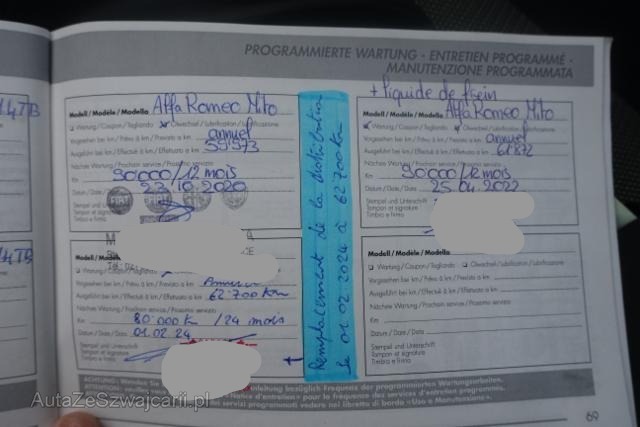 PROGRAMMIERTE WARTUNG - ENTRETIEN PROGRAMMÉ -
MANUTENZIONE PROGRAMMATA
14TB
Modell / Modèle / Modello Alfa Romeo Mito
Wartung / Coupon / Tagliando Ölwechsel / Lubrification / Lubrificazione
Vorgesehen bei km / Prévu à km / Previsto a km annuel
Ausgeführt bei km / Effectué à km / Effettuato a km 59'973
Nächste Wartung / Prochain service / Prossimo servizio
Km 90000/12 mois
Datum / Date / Data 23.10.2020
Stempel und Unterschrift
Tampon et signature
Timbro e firma
FIAT
Modell / Modèle
Wartung / Coupon / Tagliando Ölwechsel / Lubrification / Lubrificazione
Vorgesehen bei km / Prévu à km / Previsto a km
Ausgeführt bei km / Effectué à km / Effettuato a km 62'700 Km
Nächste Wartung / Prochain service / Prossimo servizio
Km 80 000 k / 24 mois
Datum / Date / Data 01.02.24
Stempel und Unterschrift
Tampon et signature
Timbro e firma
Remplacement de la distribution
le 01.02 2024 à 62'700 Km
+ liquide de frein
Modell / Modèle / Modello Alfa Romeo Mito
Wartung / Coupon / Tagliando Ölwechsel / Lubrification / Lubrificazione
Vorgesehen bei km / Prévu à km / Previsto a km annuel
Ausgeführt bei km / Effectué à km / Effettuato a km 61'872
Nächste Wartung / Prochain service / Prossimo servizio
Km 90000/12 mois
Datum / Date / Data 25.04.2022
Stempel und Unterschrift
Tampon et signature
Timbro e firma
Modell / Modèle / Modello
Wartung / Coupon / Tagliando Ölwechsel / Lubrification / Lubrificazione
Vorgesehen bei km / Prévu à km / Previsto a km
Ausgeführt bei km / Effectué à km / Effettuato a km
Nächste Wartung / Prochain service / Prossimo servizio
Km
Datum / Date / Data
Stempel und Unterschrift
Tampon et signature
Timbro e firma
ACHTUNG: Wenden Sie anleitung bezüglich Frequenz der programmierten Wartungsarbeiten.
ATTENTION: veuillez «Notice d'entretien» pour la fréquence des services d'entretien programmés.
dei servizi programmati vedere nel libretto di bordo «Uso e Manutenzione».
69
AutaZeSzwajcarii.pl